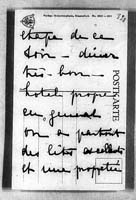 POSTKARTE
étape de ce
soir - diner
très bon -
hotel propre
en general
on a partout
des lits excellents
et une propreté